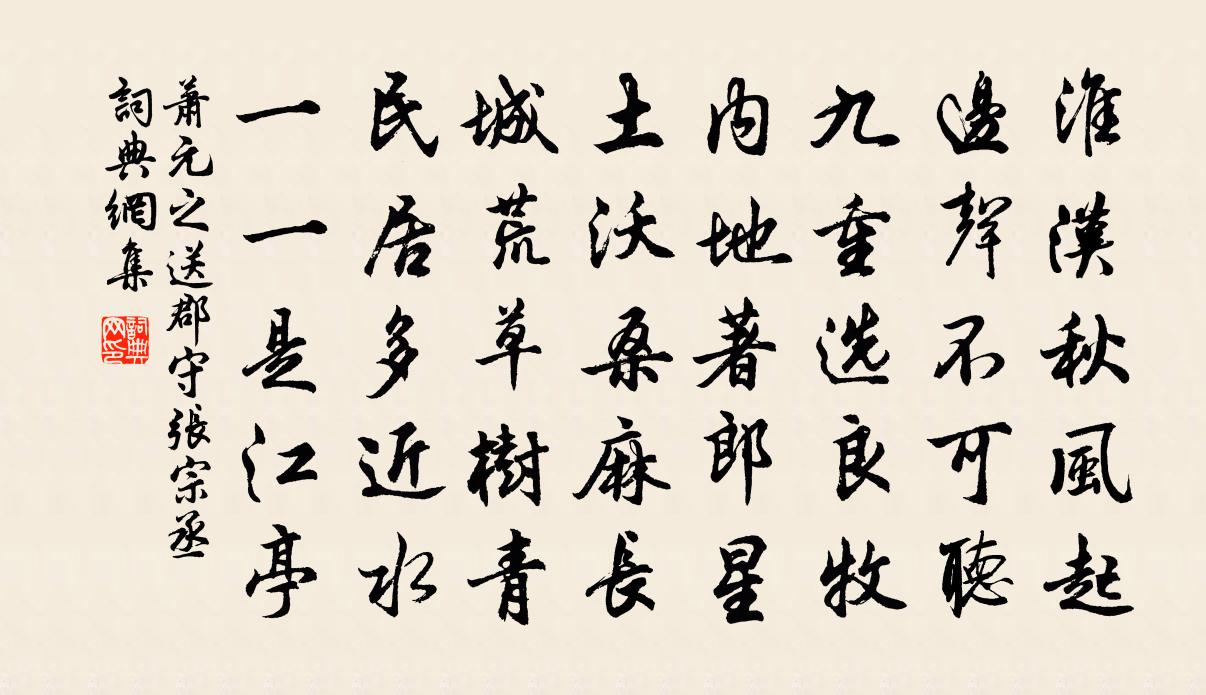 淮漢秋風起
邊聲不可聽
九重选良牧
内地著郎星
土沃桑麻長
城荒草樹青
民居多近水
一一是江亭
蕭元之送郡守張宗丞
詞典網集
詞典网印